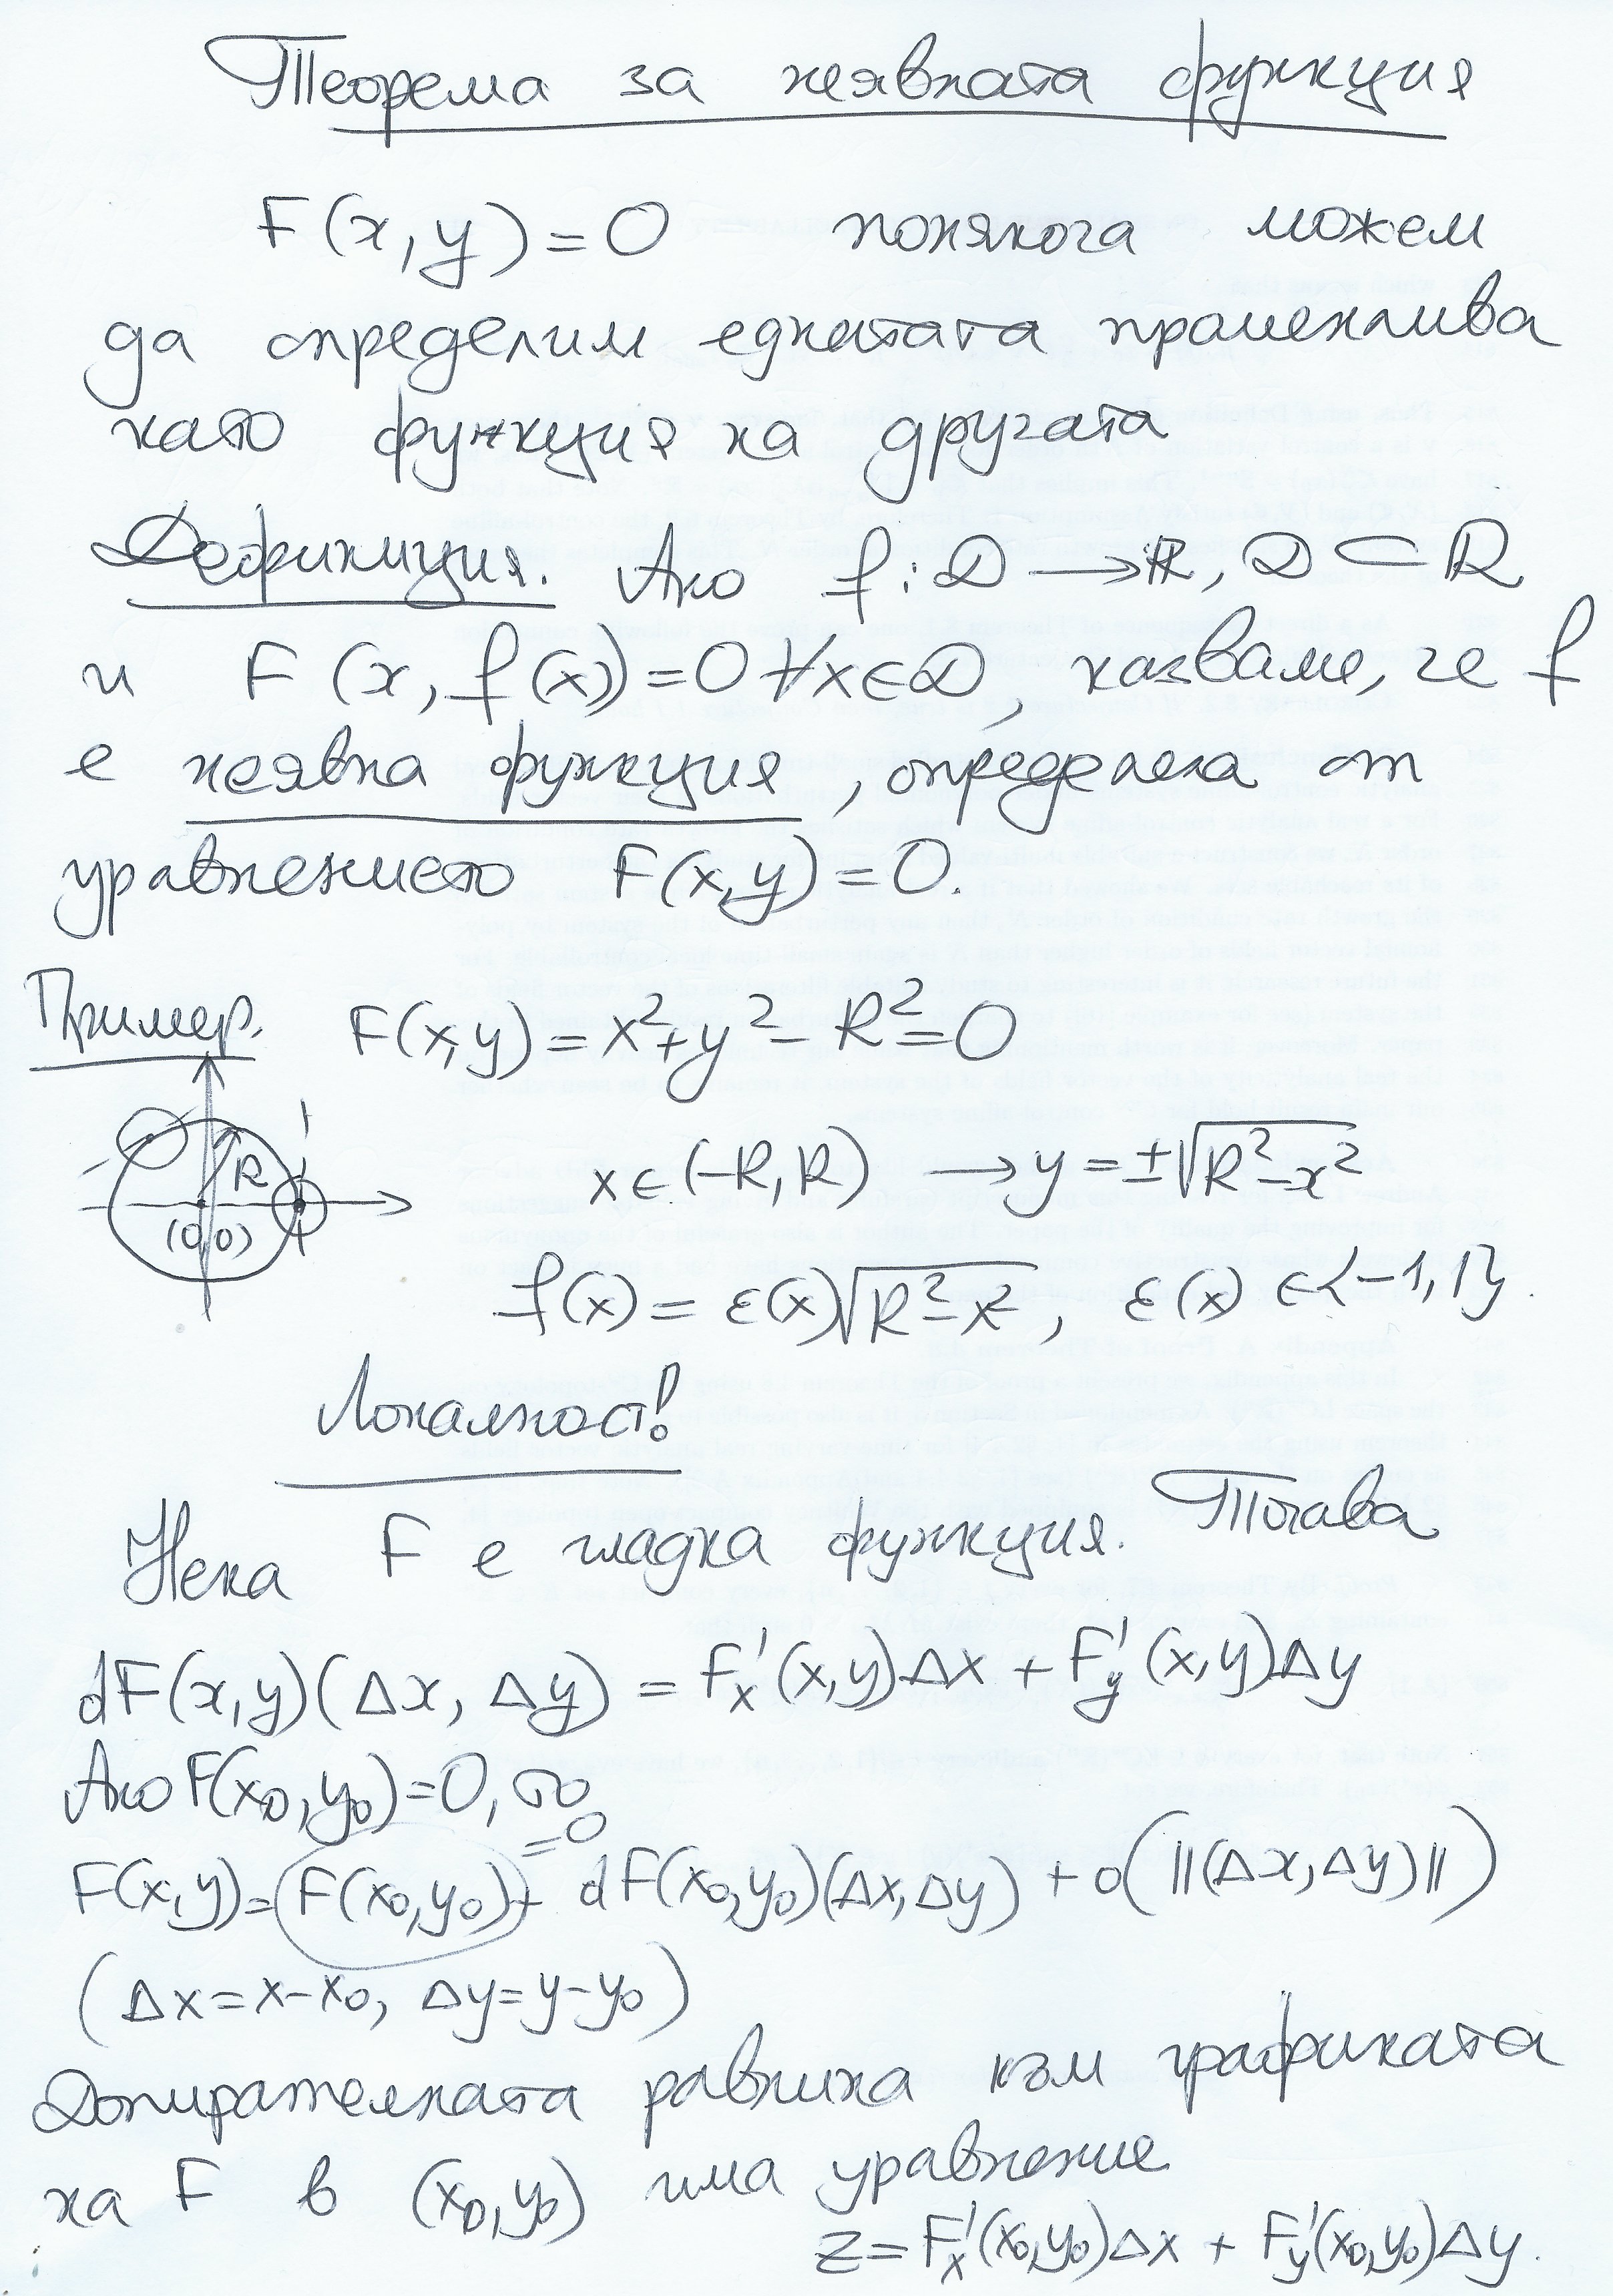 Теорема за неявната функция
F(x, y) = 0 понякога можем
да определим едната променлива
като функция на другата
Дефиниция. Ако f: D → ℝ, D ⊂ ℝ
и F(x, f(x)) = 0 ∀x ∈ D, казваме, че f
е неявна функция, определена от
уравнението F(x,y) = 0.
Пример. F(x,y) = x² + y² - R² = 0
R
(0,0)
x ∈ (-R, R) → y = ±√(R² - x²)
f(x) = ε(x)√(R² - x²), ε(x) ∈ {-1, 1}.
Локалност!
Нека F е гладка функция. Тогава
dF(x,y)(Δx, Δy) = F'ₓ(x,y)Δx + F'_y(x,y)Δy
Ако F(x₀,y₀) = 0, то
= 0
F(x,y) = F(x₀,y₀) + dF(x₀,y₀)(Δx,Δy) + o(||(Δx,Δy)||)
(Δx = x - x₀, Δy = y - y₀)
Допирателната равнина към графиката
на F в (x₀,y₀) има уравнение
z = F'ₓ(x₀,y₀)Δx + F'_y(x₀,y₀)Δy.